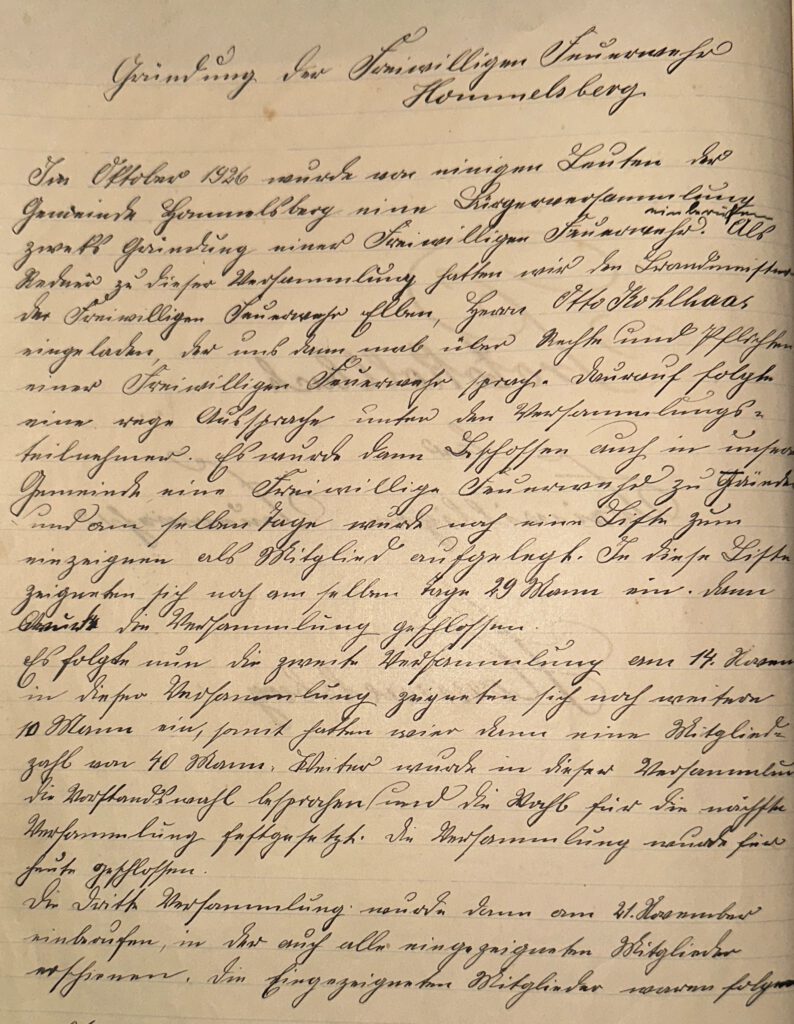 Gründung der Freiwilligen Feuerwehr
Hommelsberg
Im Oktober 1926 wurde von einigen Leuten der
Gemeinde Hommelsberg eine Bürgerversammlung
einberufen
zweks Gründung einer Freiwilligen Feuerwehr. Als
Redner zu dieser Versammlung hatten wir den Brandmeister
der Freiwilligen Feuerwehr Elben, Herrn Otto Kohlhaas
eingeladen, der uns dann über Rechte und Pflichten
einer Freiwilligen Feuerwehr sprach. Daurauf folgte
eine rege Aussprache unter den Versammlungs-
teilnehmer. Es wurde dann Beschossen auch in unsere
Gemeinde eine Freiwillige Feuerwehr zu Gründe
und am selben Tage wurde noch eine Liste zum
einzeignen als Mitglied aufgelegt. In diese Liste
zeigneten sich noch am selben Tage 29 Mann ein. dann
wurde die Versammlung geschlossen.
Es folgte nun die zweite Versammlung am 14. Novem
in dieser Versammlung zeigneten sich noch weitere
10 Mann ein, somit hatten wier dann eine Mitglied-
zahl von 40 Mann. Weiter wurde in dieser Versammlun
die Vorstandswahl besprochen und die Wahl für die nächste
Versammlung festgesetzt. die Versammlung wurde für
heute geschlossen.
Die Dritte Versammlung wurde dann am 21. November
einberufen, in der auch alle eingezeigneten Mitglieder
erschienen. die Eingezeigneten Mitglieder waren folgen